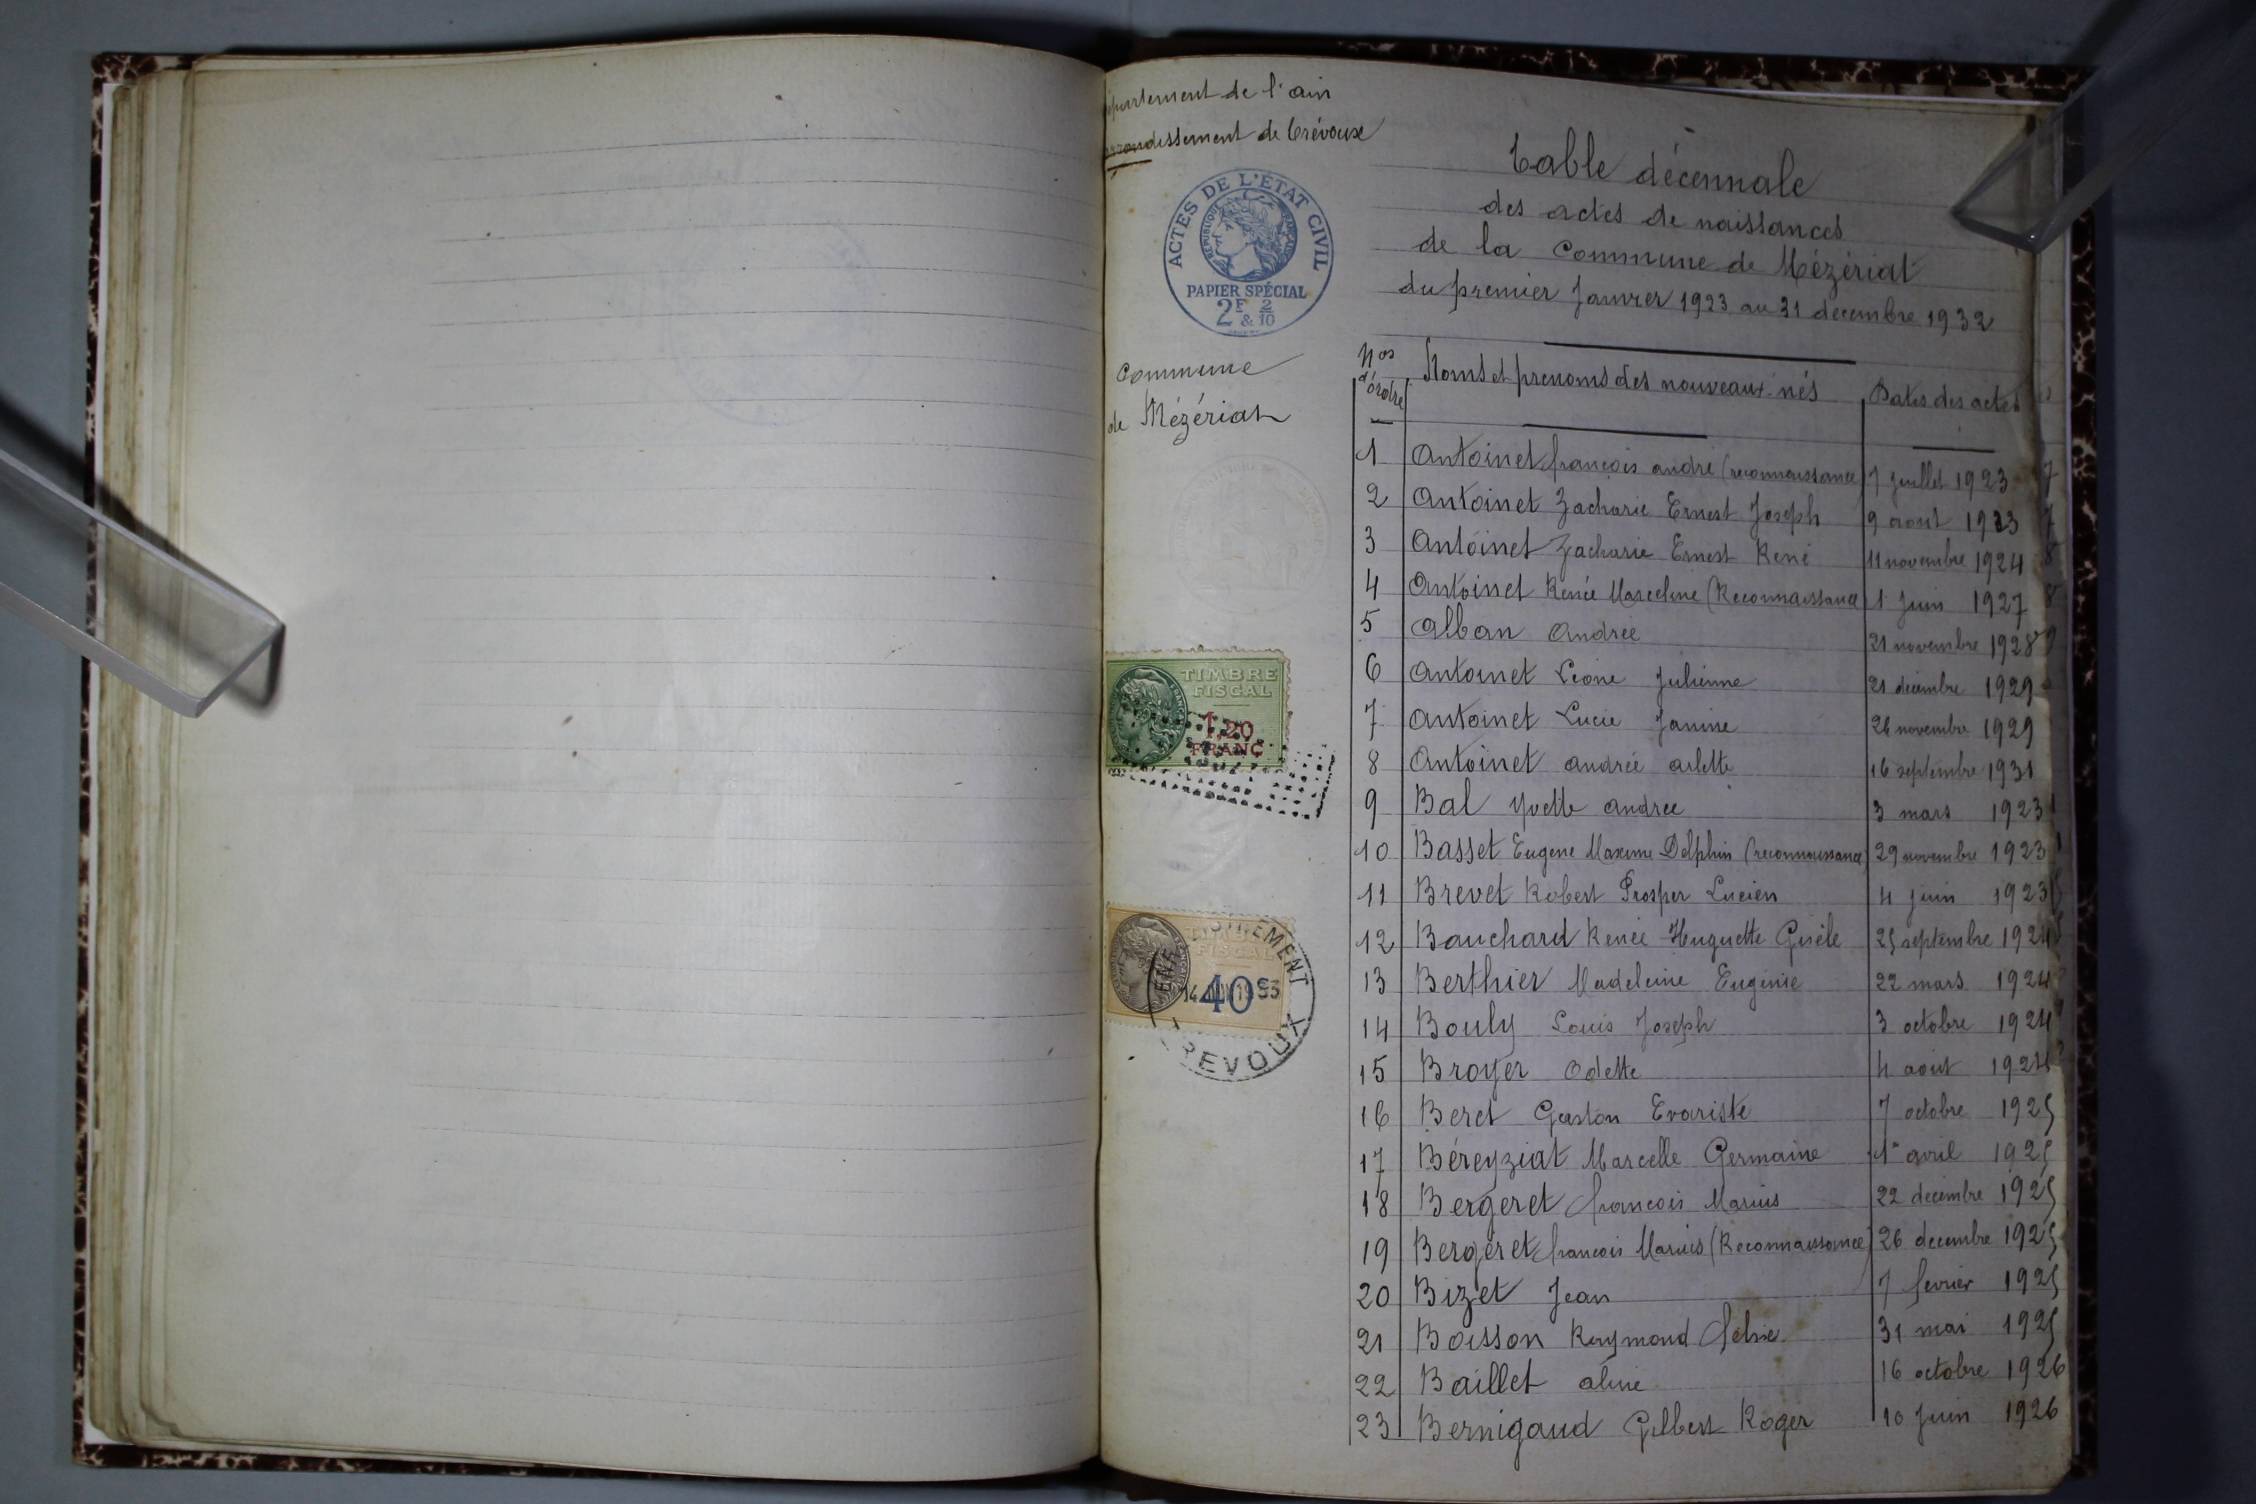 département de l'ain
arrondissement de Trévoux
ACTES DE L'ÉTAT CIVIL
RÉPUBLIQUE FRANÇAISE
PAPIER SPÉCIAL
2F & 2/10
Commune
de Mézériat
TIMBRE
FISCAL
1,20
FRANC
ENREGISTREMENT
TIMBRE
FISCAL
40c
TREVOUX
Table décennale
des actes de naissances
de la Commune de Mézériat
du premier Janvier 1923 au 31 décembre 1932
Nos d'ordre Noms et prenoms des nouveaux-nés Dates des actes
1 Antoinet françois andré (reconnaissance) 7 juillet 1923
2 Antoinet Zacharie Ernest Joseph 9 aout 1923
3 Antoinet Zacharie Ernest René 11 novembre 1924
4 Antoinet Renée Marceline (Reconnaissance) 1 Juin 1927
5 Alban Andrée 21 novembre 1928
6 Antoinet Léone Julienne 21 décembre 1929
7 Antoinet Lucie Janine 26 novembre 1929
8 Antoinet andrée arlette 16 septembre 1931
9 Bal Yvette andrée 3 mars 1923
10 Basset Eugene Maxime Delphin (reconnaissance) 29 novembre 1923
11 Brevet Robert Prosper Lucien 4 juin 1923
12 Bauchard Renée Huguette Gisèle 25 septembre 1924
13 Berthier Madeleine Eugénie 22 mars 1924
14 Bouly Louis Joseph 3 octobre 1924
15 Broyer Odette 4 aout 1924
16 Beret Gaston Evariste 7 octobre 1925
17 Béreyziat Marcelle Germaine 1er avril 1925
18 Bergeret françois Marius 22 décembre 1925
19 Bergeret françois Marius (Reconnaissance) 26 decembre 1925
20 Bizet Jean 7 fevrier 1925
21 Boisson Raymond 31 mai 1925
22 Baillet aline 16 octobre 1926
23 Bernigaud Gilbert Roger 10 Juin 1926